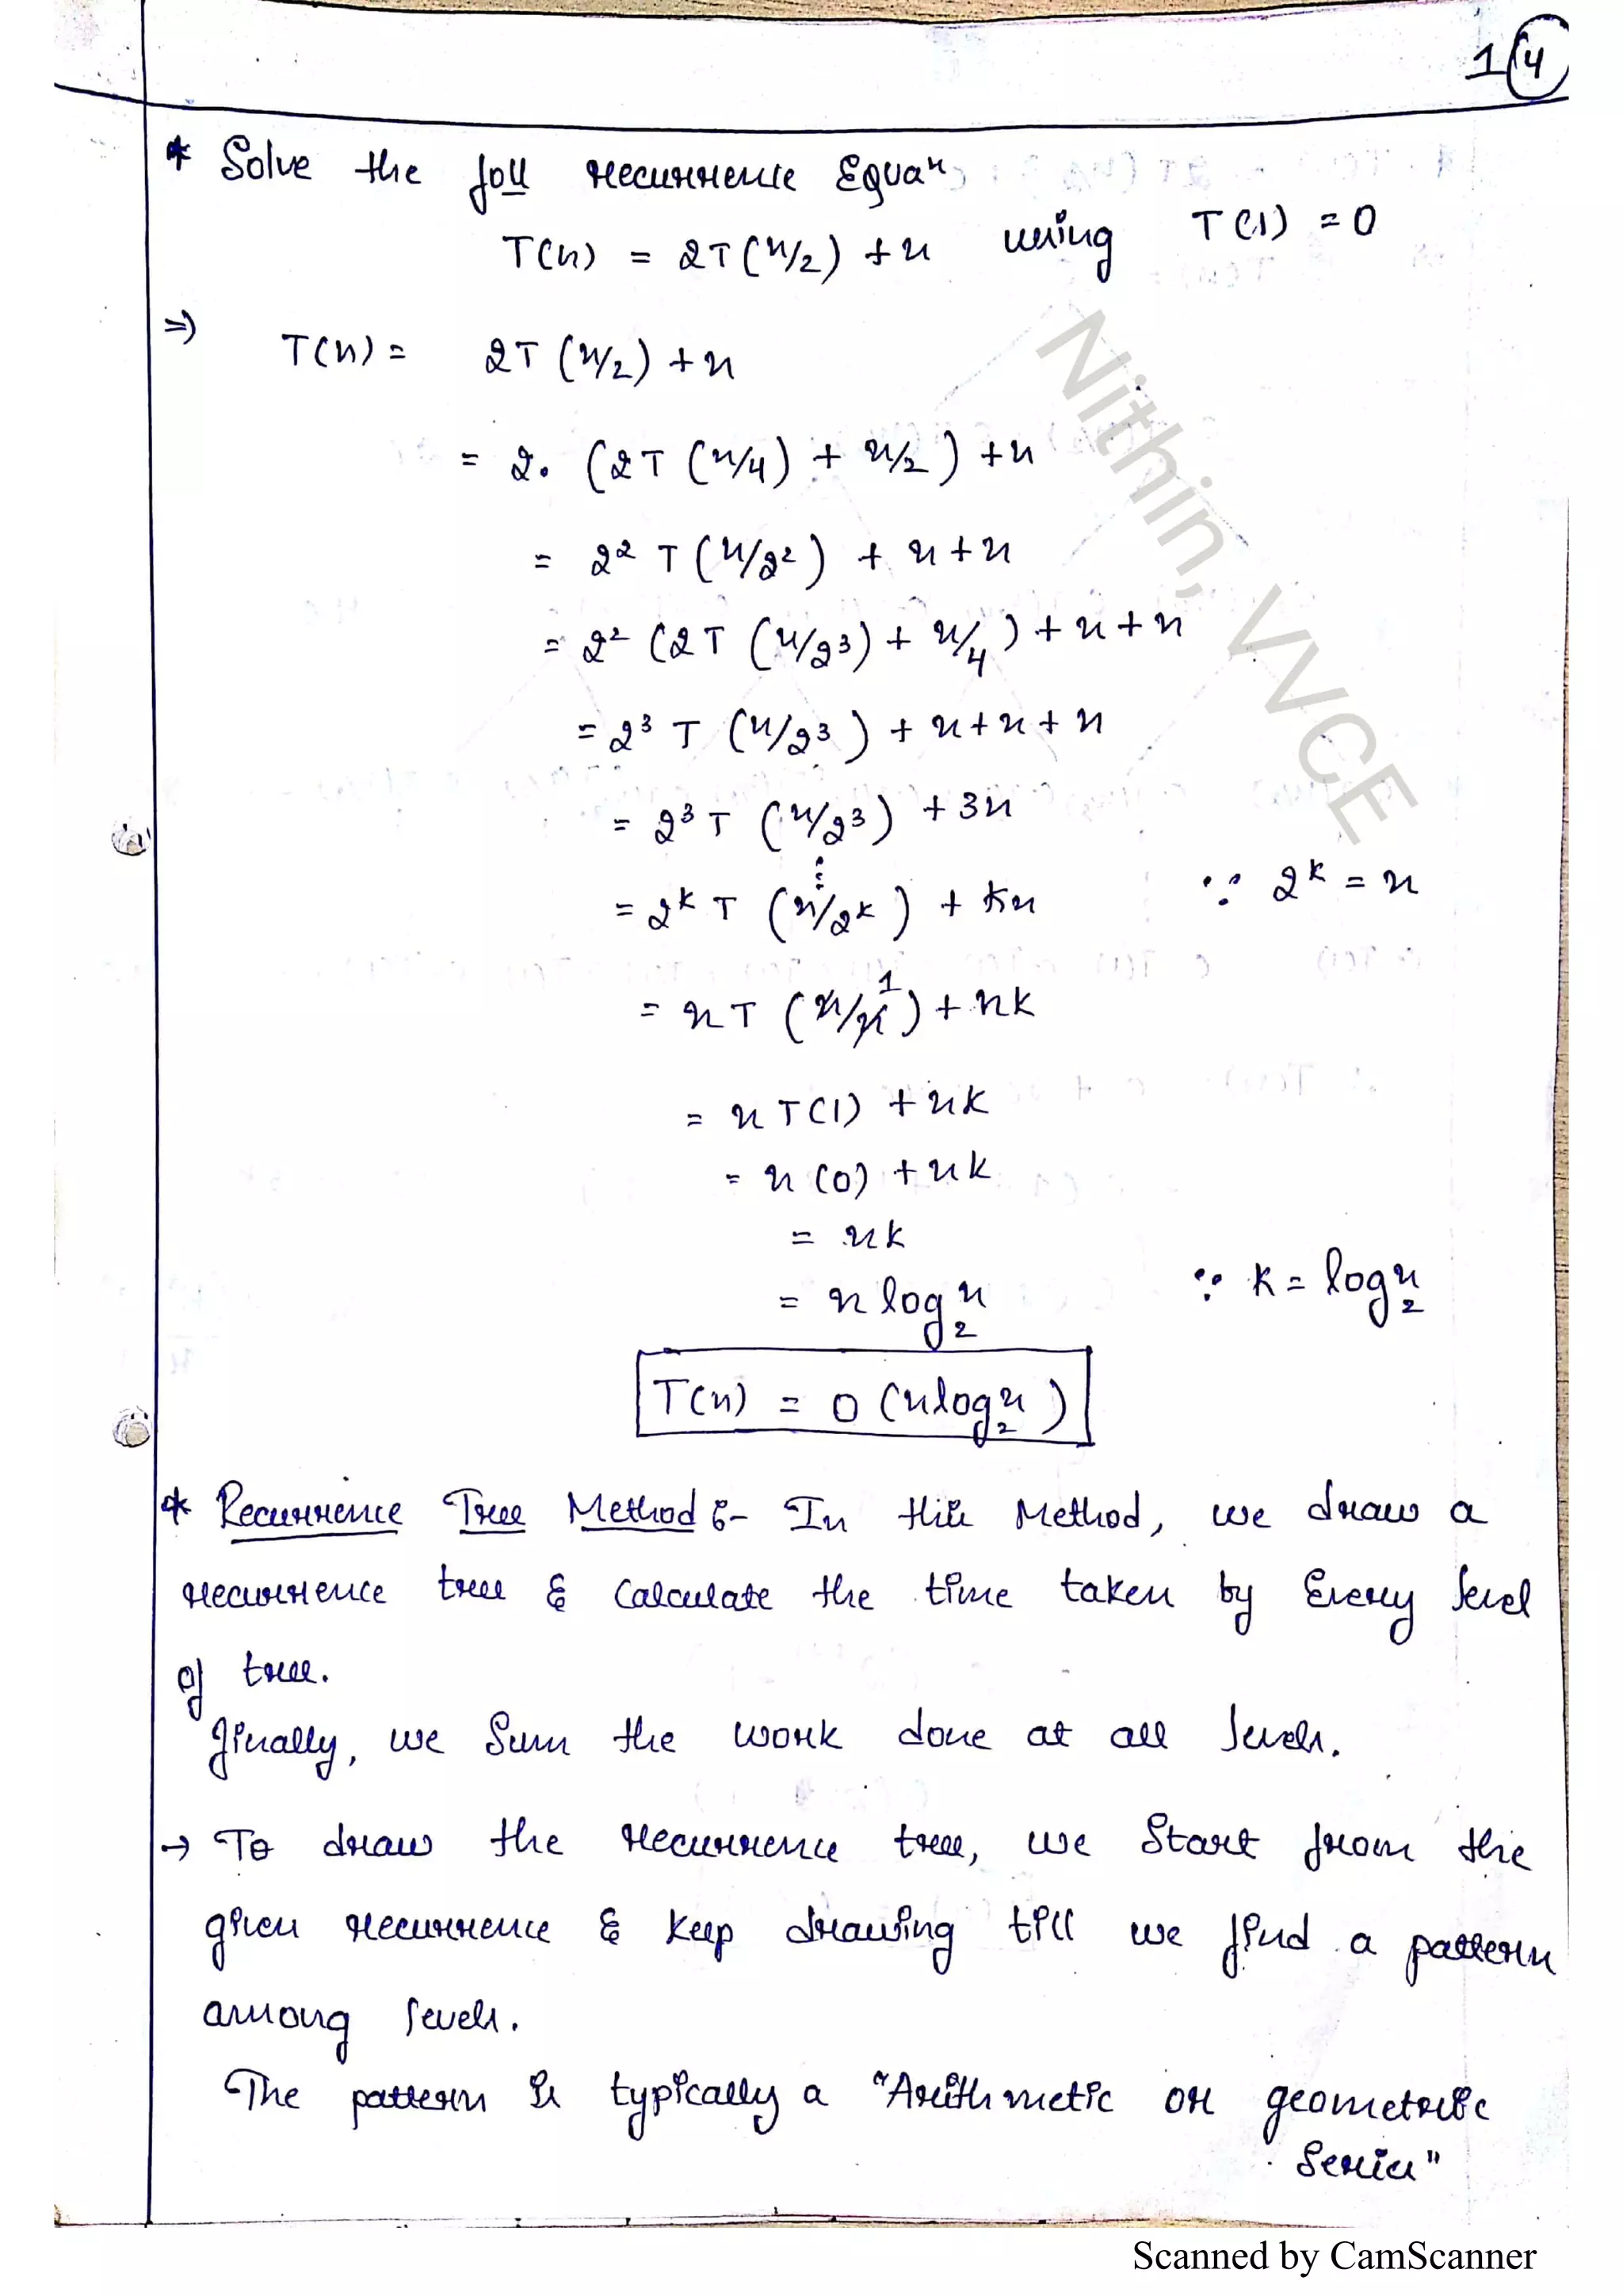 14
* Solve the foll recurrence Equaⁿ
T(n) = 2T(n/2) + n using T(1) = 0
⇒ T(n) = 2T(n/2) + n
= 2. (2T(n/4) + n/2) + n
= 2² T(n/2²) + n + n
= 2² (2T(n/2³) + n/4) + n + n
= 2³ T(n/2³) + n + n + n
= 2³ T(n/2³) + 3n
⋮
= 2ᵏ T(n/2ᵏ) + kn ∵ 2ᵏ = n
= n T(n/n 1) + nk
= n T(1) + nk
= n(0) + nk
= nk
= n log₂ n ∵ k = log₂ n
T(n) = O(n log₂ n)
* Recurrence Tree Method :- In this Method, we draw a
recurrence tree & calculate the time taken by Every level
of tree.
finally, we Sum the work done at all levels.
→ To draw the recurrence tree, we Start from the
given recurrence & keep drawing till we find a pattern
among levels.
The pattern is typically a "Arithmetic or geometric
Series"
Nithin, VVCE
Scanned by CamScanner